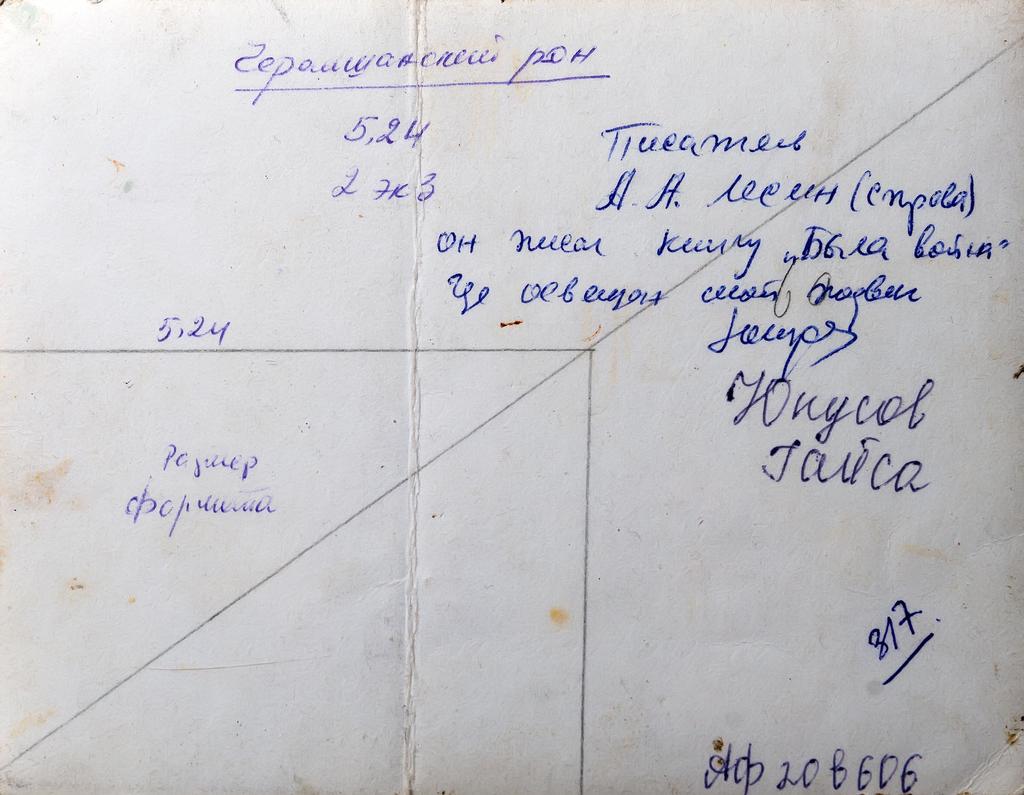 Черемшанский рон
5,24
2 экз
Писатель
А. А. Лесин (справа)
он писал книгу „Была война"
Где освещен мой подвиг
5,24
Юнусов
Гайса
Размер
формата
317.
АФ 20 в 606